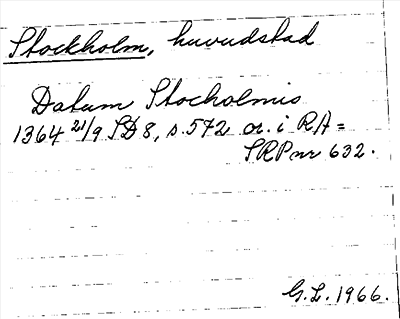 Stockholm, huvudstad
Datum Stocholmis
1364 21/9 SD 8, s. 572 or. i RA =
SRP nr 632.
G.L. 1966.